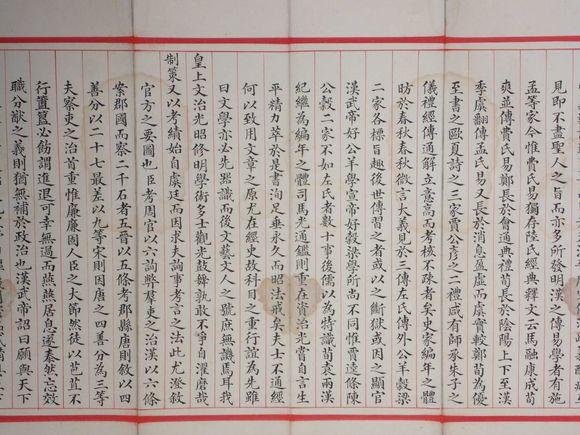 見即不盡聖人之旨而亦多所發明漢之傳易學者有施
孟等家今惟費氏易獨存陸氏經典釋文云馬融康成荀
爽並傳費氏易鄭長於會通典禮荀長於陰陽上下至漢
季虞翻傳孟氏易又長於消息盈虛而虞實較鄭荀為優
至書之歐夏詩之三家賈公彥之二禮咸有師承朱子之
儀禮經傳通解立意高而考核不疎者矣史家編年之體
昉於春秋春秋微言大義見於三傳左氏傳外公羊穀梁
二家各標旨趣後世傳習之者或以之斷獄或因之顯官
漢武帝好公羊學宣帝好穀梁學所尚不同惟賈逵條陳
公穀二家不如左氏者數十事後儒以為特識荀袁兩漢
紀繼為編年之體司馬光通鑑則重在資治光嘗自言生
平精力萃於是書洵足垂永久而昭法戒矣夫士不通經
何以致用文章之原尤在經史故科目之重行誼為先雖
曰文學亦必先器識而後文藝文人之號庶無譏焉耳我
皇上文治光昭修明學術多士觀光鼓舞孰敢不爭自濯磨哉
制策又以考績始自虞廷而因求夫詢事考言之法此尤澄敘
官方之要圖也臣考周官以六計弊羣吏之治漢以六條
案郡國而察二千石者五晉以五條考郡縣唐則敘以四
善分以二十七最差以九等宋則因唐之四善分為三等
夫察吏之治首重惟廉廉固人臣之大節然徒以苞苴不
行簠簋必飭謂進退可幸無過而燕燕居息遂泰然忘效
職分猷之義則猶無補於政治也漢武帝詔曰願與天下